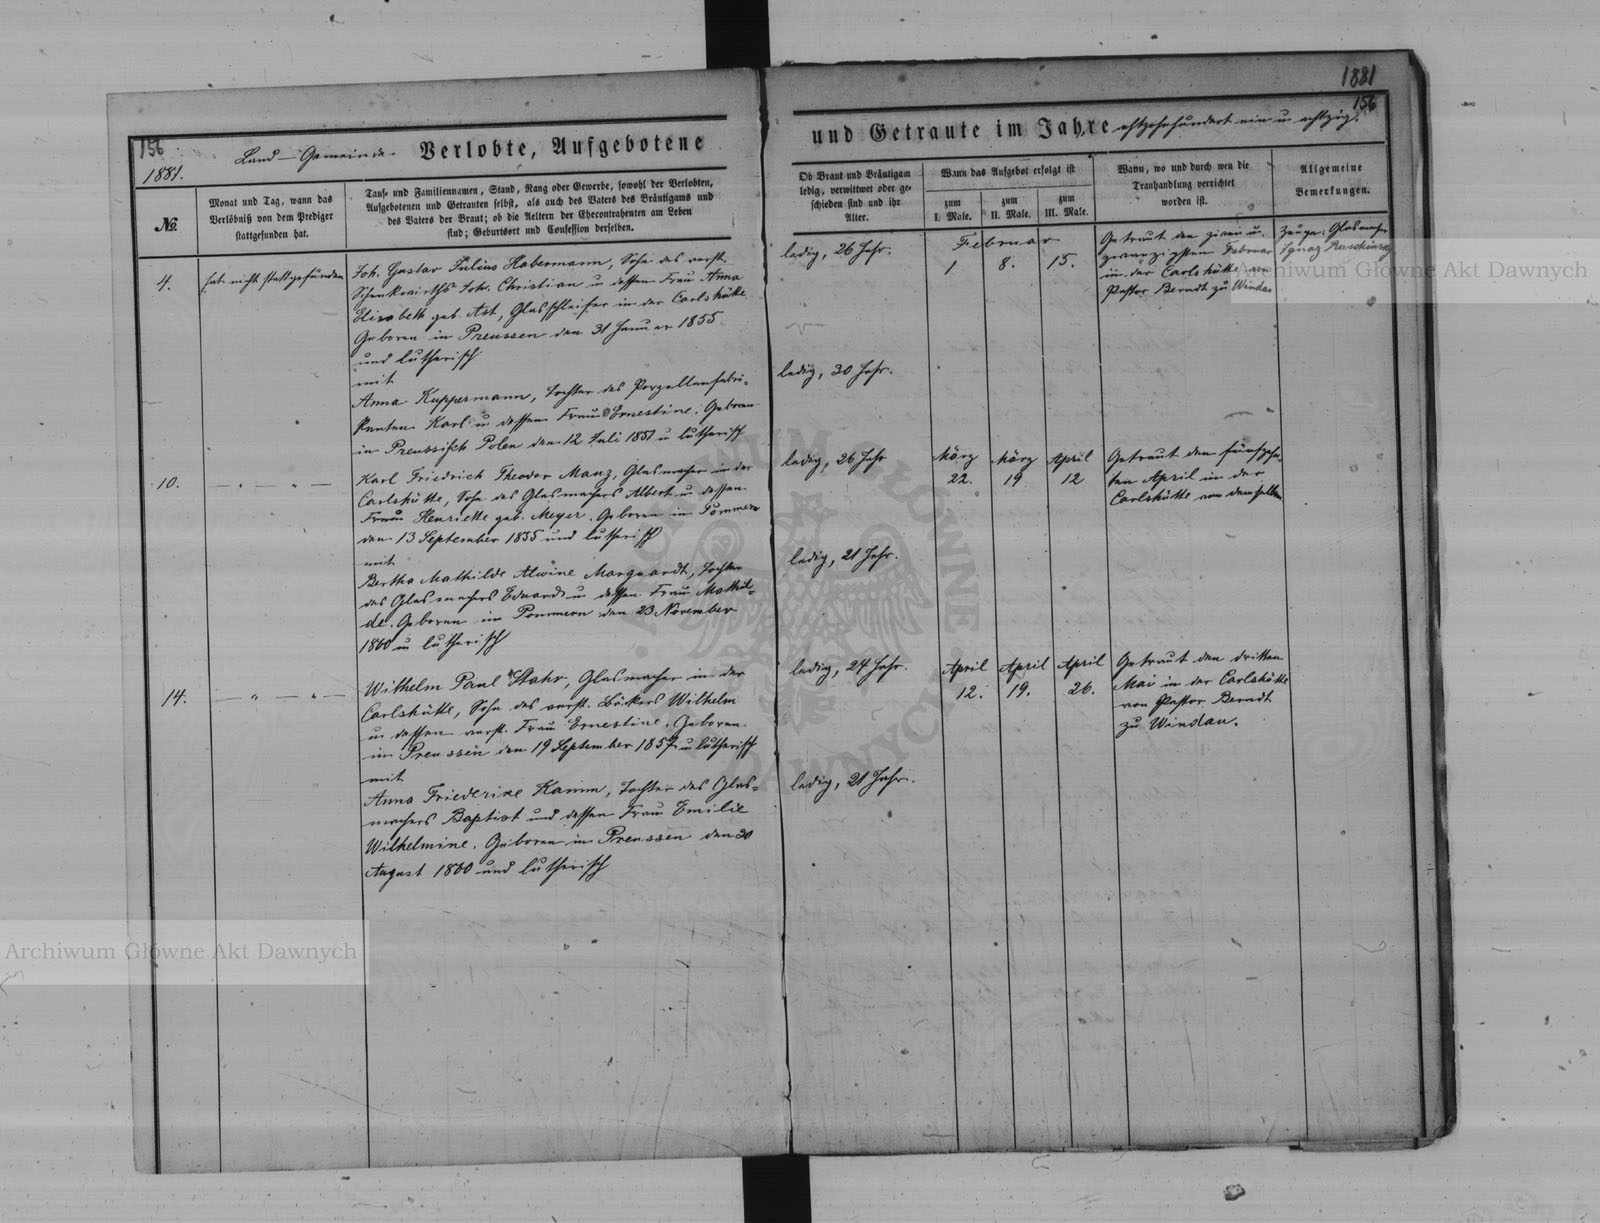 1881
156
156
1881.
Land-Gemeinde Verlobte, Aufgebotene
und Getraute im Jahre achtzehnhundert ein u achtzig.
№.
Monat und Tag, wann das
Verlöbniß von dem Prediger
stattgefunden hat.
Tauf- und Familiennamen, Stand, Rang oder Gewerbe, sowohl der Verlobten,
Aufgebotenen und Getrauten selbst, als auch des Vaters des Bräutigams und
des Vaters der Braut; ob die Aeltern der Ehecontrahenten am Leben
sind; Geburtsort und Confession derselben.
Ob Braut und Bräutigam
ledig, verwittwet oder ge-
schieden sind und ihr
Alter.
Wann das Aufgebot erfolgt ist
zum
I. Male.
zum
II. Male.
zum
III. Male.
Wann, wo und durch wen die
Trauhandlung verrichtet
worden ist.
Allgemeine
Bemerkungen.
4.
hat nicht stattgefunden
Joh. Gustav Julius Habermann, Sohn des verst.
Schenkwirths Joh. Christian u dessen Frau Anna
Elisabeth geb. Ast, Glasschleifer in der Carlshütte
Geboren in Preussen den 31 Januar 1855
und lutherisch
mit
Anna Kuppermann, Tochter des Porzellanfabri-
kanten Karl u dessen Frau Ernestine. Geboren
in Preussisch Polen den 12 Juli 1851 u lutherisch
ledig, 26 Jahr.
ledig, 30 Jahr.
Februar
1 8. 15.
Getraut den zwei u.
zwanzigsten Februar
in der Carlshütte von
Pastor Berndt zu Windau
Zeuge: Glasmacher
Ignaz
10.
— „ — „ —
Karl Friedrich Theodor Manz, Glasmacher in der
Carlshütte, Sohn des Glasmachers Albert u dessen
Frau Henriette geb. Meyer. Geboren in Pommern
den 13 September 1855 und lutherisch
mit
Bertha Mathilde Alwine Marquardt, Tochter
des Glasmachers Eduard u dessen Frau Mathil-
de. Geboren in Pommern den 23 November
1860 u lutherisch
ledig, 26 Jahr
ledig, 21 Jahr.
März März April
22. 19 12
Getraut den fünfzehn-
ten April in der
Carlshütte von demselben
14.
— „ — „ —
Wilhelm Paul Stahr, Glasmacher in der
Carlshütte, Sohn des verst. Bäckers Wilhelm
u dessen verst. Frau Ernestine. Geboren
in Preussen den 19 September 1857 u lutherisch
mit
Anna Friederike Kamm, Tochter des Glas-
machers Baptist und dessen Frau Emilie
Wilhelmine. Geboren in Preussen den 30
August 1860 und lutherisch
ledig, 24 Jahr.
ledig, 21 Jahr.
April April April
12. 19. 26.
Getraut den dritten
Mai in der Carlshütte
von Pastor Berndt
zu Windau.
Archiwum Główne Akt Dawnych
Archiwum Główne Akt Dawnych